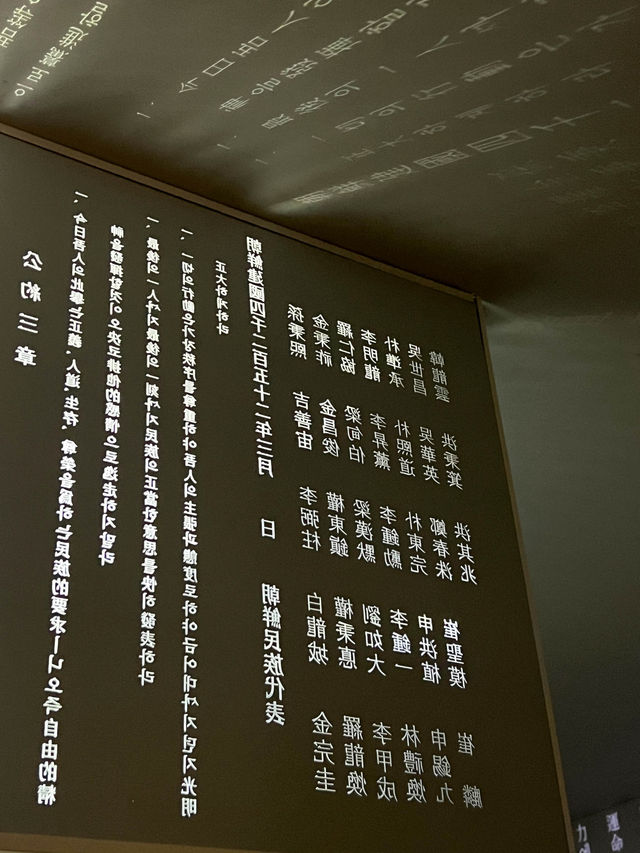 公約三章
一、今日吾人의此擧는正義、人道、生存、尊榮을爲하는民族的要求ㅣ니오즉自由的精
神을發揮할것이오決코排他的感情으로逸走하지말라
一、最後의一人ᄭᅡ지最後의一刻ᄭᅡ지民族의正當한意思를快히發表하라
一、一切의行動은가장秩序를尊重하야吾人의主張과態度로하야금어대ᄭᅡ지던지光明
正大하게하라
朝鮮建國四千二百五十二年三月 日 朝鮮民族代表
孫秉熙 吉善宙 李弼柱 白龍城 金完圭
金秉祚 金昌俊 權東鎭 權秉悳 羅龍煥
羅仁協 梁甸伯 梁漢默 劉如大 李甲成
李明龍 李昇薰 李鍾勳 李鍾一 林禮煥
朴準承 朴熙道 朴東完 申洪植 申錫九
吳世昌 吳華英 鄭春洙 崔聖模 崔麟
韓龍雲 洪秉箕 洪其兆
運命